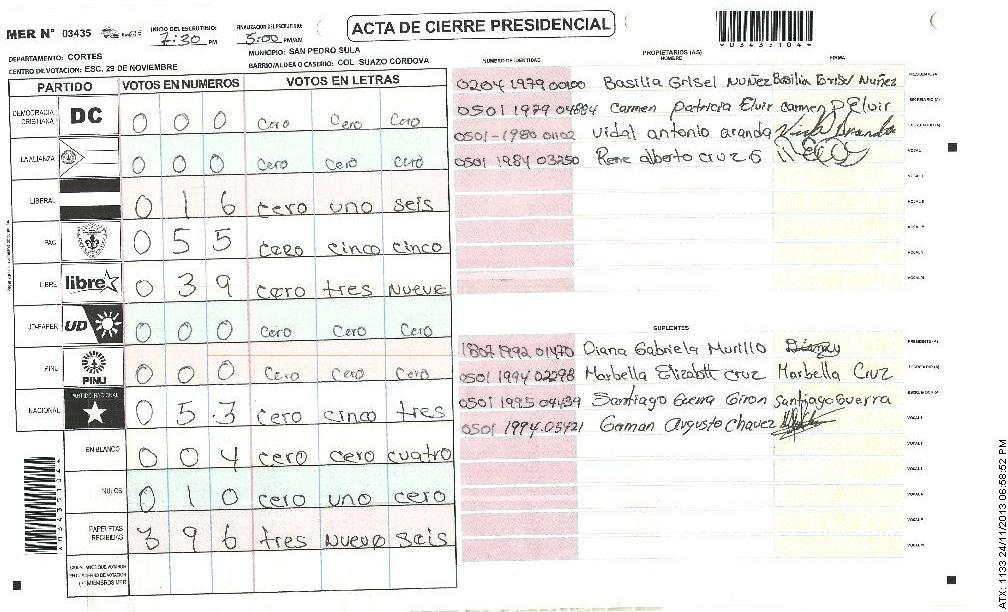 ACTA DE CIERRE PRESIDENCIAL
MER N° 03435
INICIO DEL ESCRUTINIO: 7:30 PM
FINALIZACION DEL ESCRUTINIO: 5:00 PM/AM
*03435104*
DEPARTAMENTO: CORTES
MUNICIPIO: SAN PEDRO SULA
CENTRO DE VOTACION: ESC. 29 DE NOVIEMBRE
BARRIO/ALDEA O CASERIO: COL SUAZO CORDOVA
PARTIDO VOTOS EN NUMEROS VOTOS EN LETRAS
DEMOCRACIA CRISTIANA DC 0 0 0 cero cero cero
LA ALIANZA 0 0 0 cero cero cero
LIBERAL 0 1 6 cero uno seis
PAC 0 5 5 cero cinco cinco
LIBRE libre 0 3 9 cero tres nueve
UD-FAPER UD 0 0 0 cero cero cero
PINU PINU 0 0 0 cero cero cero
NACIONAL PARTIDO NACIONAL 0 5 3 cero cinco tres
EN BLANCO 0 0 4 cero cero cuatro
NULOS 0 1 0 cero uno cero
PAPELETAS RECIBIDAS 3 9 6 tres nueve seis
PROPIETARIOS (AS)
NUMERO DE IDENTIDAD NOMBRE FIRMA
0204 1979 00100 Basilia Grisel Nuñez Basilia Grisel Nuñez PRESIDENTE (A)
0501 1979 04884 Carmen Patricia Elvir Carmen P Elvir SECRETARIO (A)
0501-1980 01102 Vidal antonio aranda ESCRUTADOR (A)
0501 1984 03250 Rene alberto cruz G VOCAL I
SUPLENTES
1807 1992 01470 Diana Gabriela Murillo PRESIDENTE (A)
0501 1994 02298 Marbella Elizabeth Cruz Marbella Cruz SECRETARIO (A)
0501 1995 04439 Santiago Guerra Giron Santiago Guerra ESCRUTADOR (A)
0501 1994-05421 German Augusto Chavez VOCAL I
ATX: 1133 24/11/2013 06:58:52 PM